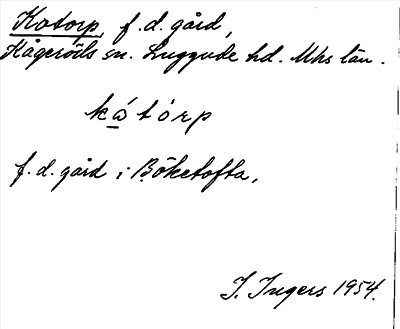 Kotorp, f.d. gård,
Kågeröds sn. Luggude hd. Mhs län.
kótórp
f.d. gård i Böketofta,
I. Ingers 1954.